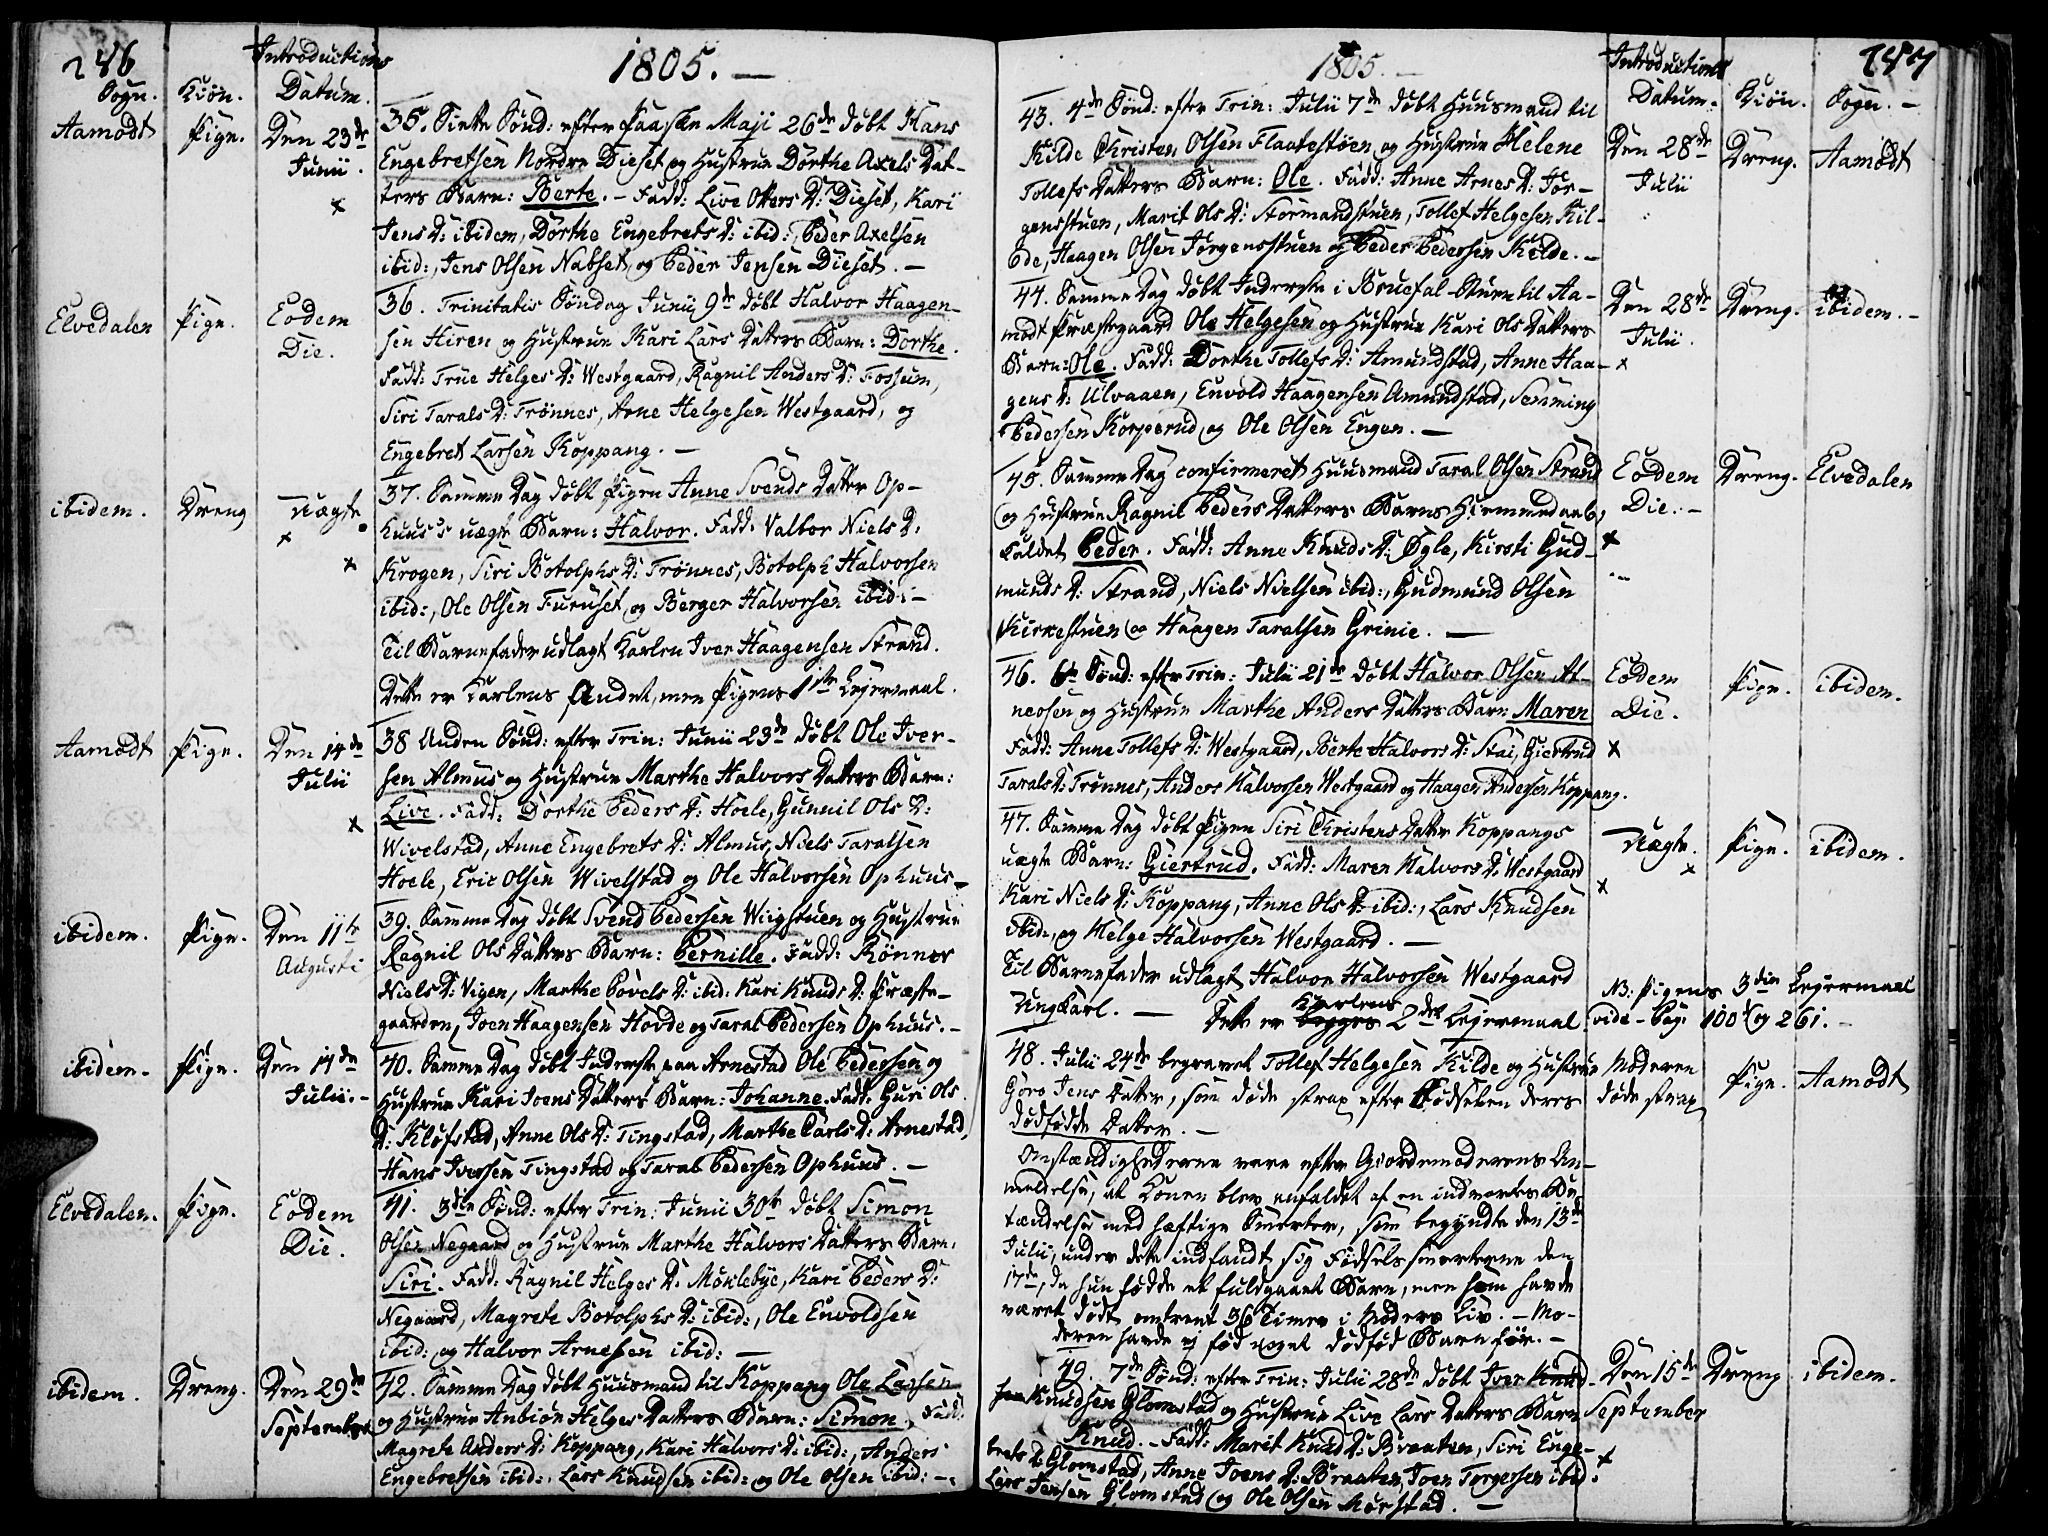 246
Introductions
1805. —
Sogn. Kiön. Datum.
Aamodt Pige. Den 23de Junii.
35. Siette Sönd: efter Paaske Maji 26de döbt Hans
Engebretsen Nordre Dieset og Hustrue Dorthe Axels Dat-
ters Barn: Berte. – Fadd: Live Otters D: Dieset, Kari
Jens D: ibidem, Dorthe Engebrets D: ibid:, Peder Axelsen
ibid:, Jens Olsen Nabset, og Peder Jensen Dieset. —
Elvedalen Pige. Eodem Die.
36. Trinitatis Söndag Junii 9de döbt Halvor Haagen-
sen Hiren og Hustrue Kari Lars Datters Barn: Dorthe.
Fadd: True Helges D: Westgaard, Ragnil Anders D: Fossum,
Siri Tarals D: Trönnes, Arne Helgesen Westgaard, og
Engebret Larsen Koppang. —
ibidem. Dreng Uægte.
37. Samme Dag döbt Pigen Anne Svends Datter Op-
huus's uægte Barn: Halvor. Fadd: Valbor Niels D:
Krogen, Siri Botolphs D: Trönnes, Botolph Halvorsen
ibid:, Ole Olsen Furuset, og Berger Halvorsen ibid: –
Til Barnefader udlagt Karlen Iver Haagensen Strand.
Dette er Karlens Andet, men Pigens 1ste Lejermaal.
Aamodt Pige. Den 14de Julii
38 Anden Sönd: efter Trin: Junii 23de döbt Ole Iver-
sen Almus og Hustrue Marthe Halvors Datters Barn:
Live. Fadd: Dorthe Peders D: Hoele, Gunnil Ols D:
Wivelstad, Anne Engebrets D: Almus, Niels Taralsen
Hoele, Eric Olsen Wivelstad og Ole Halvorsen Ophuus.
ibidem. Pige. Den 11te Augusti
39. Samme Dag döbt Svend Pedersen Wiigstuen og Hustrue
Ragnil Ols Datters Barn: Pernille. Fadd: Rönnov
Niels D: Vigen, Marthe Povels D: ibid: Kari Knuds D: Præste-
gaarden, Joen Haagensen Hovde og Taral Pedersen Ophuus. —
ibidem. Pige. Den 14de Julii. –
40. Samme Dag döbt Inderste paa Arnestad Ole Pedersen og
Hustrue Kari Joens Datters Barn: Johanne. Fadd: Guri Ols
D: Klöfstad, Anne Ols D: Tingstad, Marthe Carls D: Arnestad,
Hans Iversen Tingstad og Taral Pedersen Ophuus. —
Elvedalen. Pige. Eodem Die.
41. 3die Sönd: efter Trin: Junii 30te döbt Simon
Olsen Negaard og Hustrue Marthe Halvors Datters Barn:
Siri. Fadd: Ragnil Helges D: Möklebye, Kari Peders D:
Negaard, Magrete Botolphs D: ibid:, Ole Envoldsen
ibid: og Halvor Arnesen ibid: —
ibidem. Dreng. Den 29de September
42. Samme Dag döbt Huusmand til Koppang Ole Larsen
og Hustrue Anbiön Helges Datters Barn: Simon. Fadd:
Magrete Anders D: Koppang, Kari Halvors D: ibid:, Anders
Engebretsen ibid:, Lars Knudsen ibid: og Ole Olsen ibid: –
247
1805. —
Introductions
Datum. Kiön. Sogn. —
43. 4de Sönd: efter Trin: Julii 7de döbt Huusmand til
Kilde Christen Olsen Flaatestöen og Hustrue Helene
Tollefs Datters Barn: Ole. Fadd: Anne Arnes D: Jör-
gensstuen, Marit Ols D: Stormandstuen, Tollef Helgesen Kil-
de, Haagen Olsen Jörgensstuen og Peder Pedersen Kilde. –
Den 28de Julii Dreng. Aamodt
44. Samme Dag döbt Inderste i Bruefal-Stuen til Aa-
modt Præstegaard Ole Helgesen og Hustrue Kari Ols Datters
Barn: Ole. Fadd: Dorthe Tollefs D: Amundstad, Anne Haa-
gens D: Ulvaaen, Envold Haagensen Amundstad, Semming
Pedersen Korperud og Ole Olsen Engen. —
Den 28de Julii. Dreng. ibidem. –
45. Samme Dag confirmeret Huusmand Taral Olsen Strand
og Hustrue Ragnil Peders Datters Barns Hiemmedaab,
kaldet Peder. Fadd: Anne Knuds D: Ögle, Kirsti Gud-
munds D: Strand, Niels Nielsen ibid:, Gudmund Olsen
Kirkestuen og Haagen Taralsen Grinie. —
Eodem Die. – Dreng. Elvedalen
46. 6te Sönd: efter Trin: Julii 21de döbt Halvor Olsen At-
neosen og Hustrue Marthe Anders Datters Barn Maren
Fadd: Anne Tollefs D: Westgaard, Berte Halvors D: Stai, Giertrud
Tarals D: Trönnes, Anders Halvorsen Westgaard og Haagen Andersen Koppang.
Eodem Die. Pige. ibidem.
47. Samme Dag döbt Pigen Siri Christens Datter Koppangs
uægte Barn: Giertrud. Fadd: Maren Halvors D: Westgaard
Kari Niels D: Koppang, Anne Ols D: ibid:, Lars Knudsen
ibid:, og Helge Halvorsen Westgaard. —
Til Barnefader udlagt Halvor Halvorsen Westgaard
Ungkarl. — Dette er Karlens 2det Lejermaal.
Uægte. Pige. ibidem.
NB: Pigens 3die Lejermaal
vide – Pag: 100 og 261. –
48. Julii 24de begravet Tollef Helgesen Kilde og Hustrue
Göro Jens Datter, som döde strax efter Födselen deres
dödfödde Datter. —
Moderen döde strax Pige. Aamodt
Omstændighederne vare efter Giordemoderens An-
meldelse, at Konen blev anfaldet af en indvortes Be-
tændelse med hæftige Smerter, som begyndte den 13de
Julii, under dette indfandt sig Födselssmerterne den
17de, da hun födde et fuldgaaet Barn, men som havde
været dödt omtrent 36 Timer i Moders Liv. – Mo-
deren havde ej föd noget dödföd Barn för. –
49. 7de Sönd: efter Trin: Julii 28de döbt Iver Knud-
Knudsen Glomstad og Hustrue Live Lars Datters Barn
Knud. – Fadd: Marit Knud D: Braaten, Siri Enge-
brets D: Glomstad, Anne Joens D: Braaten, Joen Torgersen ibid:
Lars Jensen Glomstad og Ole Olsen Morstad. —
Den 15de September Dreng. ibidem.